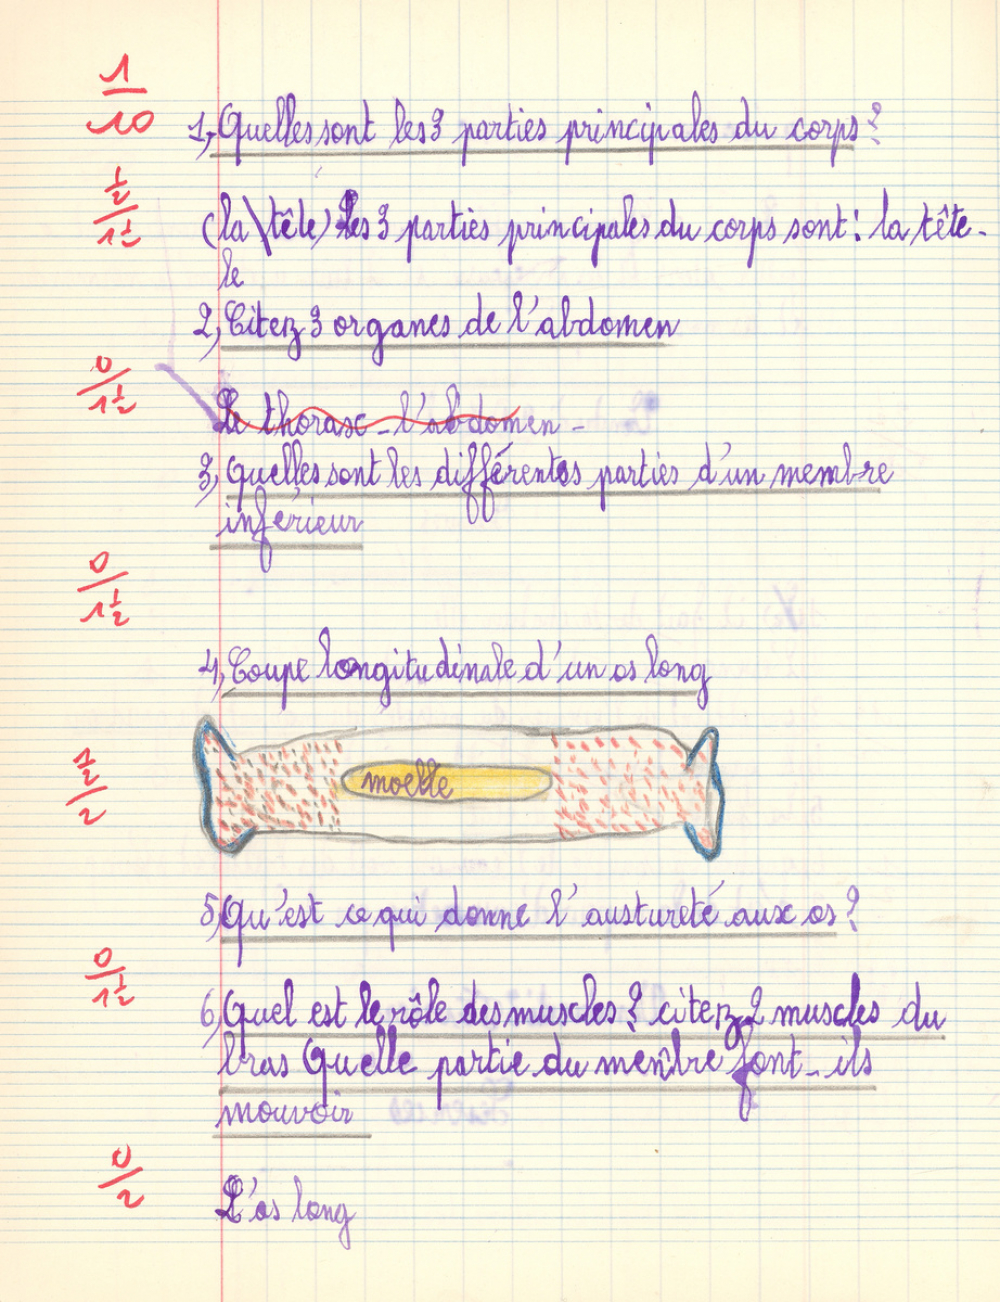 1/10
1, Quelles sont les 3 parties principales du corps ?
½/1½
(la tête) Les 3 parties principales du corps sont : la tête -
le
2, Citez 3 organes de l'abdomen
0/1½
Le thorax - l'abdomen -
3, Quelles sont les différentes parties d'un membre
inférieur
0/1½
4, Coupe longitudinale d'un os long
½/2
moelle
5, Qu'est ce qui donne l'austureté aux os ?
0/1½
6, Quel est le rôle des muscles ? citez 2 muscles du
bras Quelle partie du membre font-ils
mouvoir
0/2
L'os long